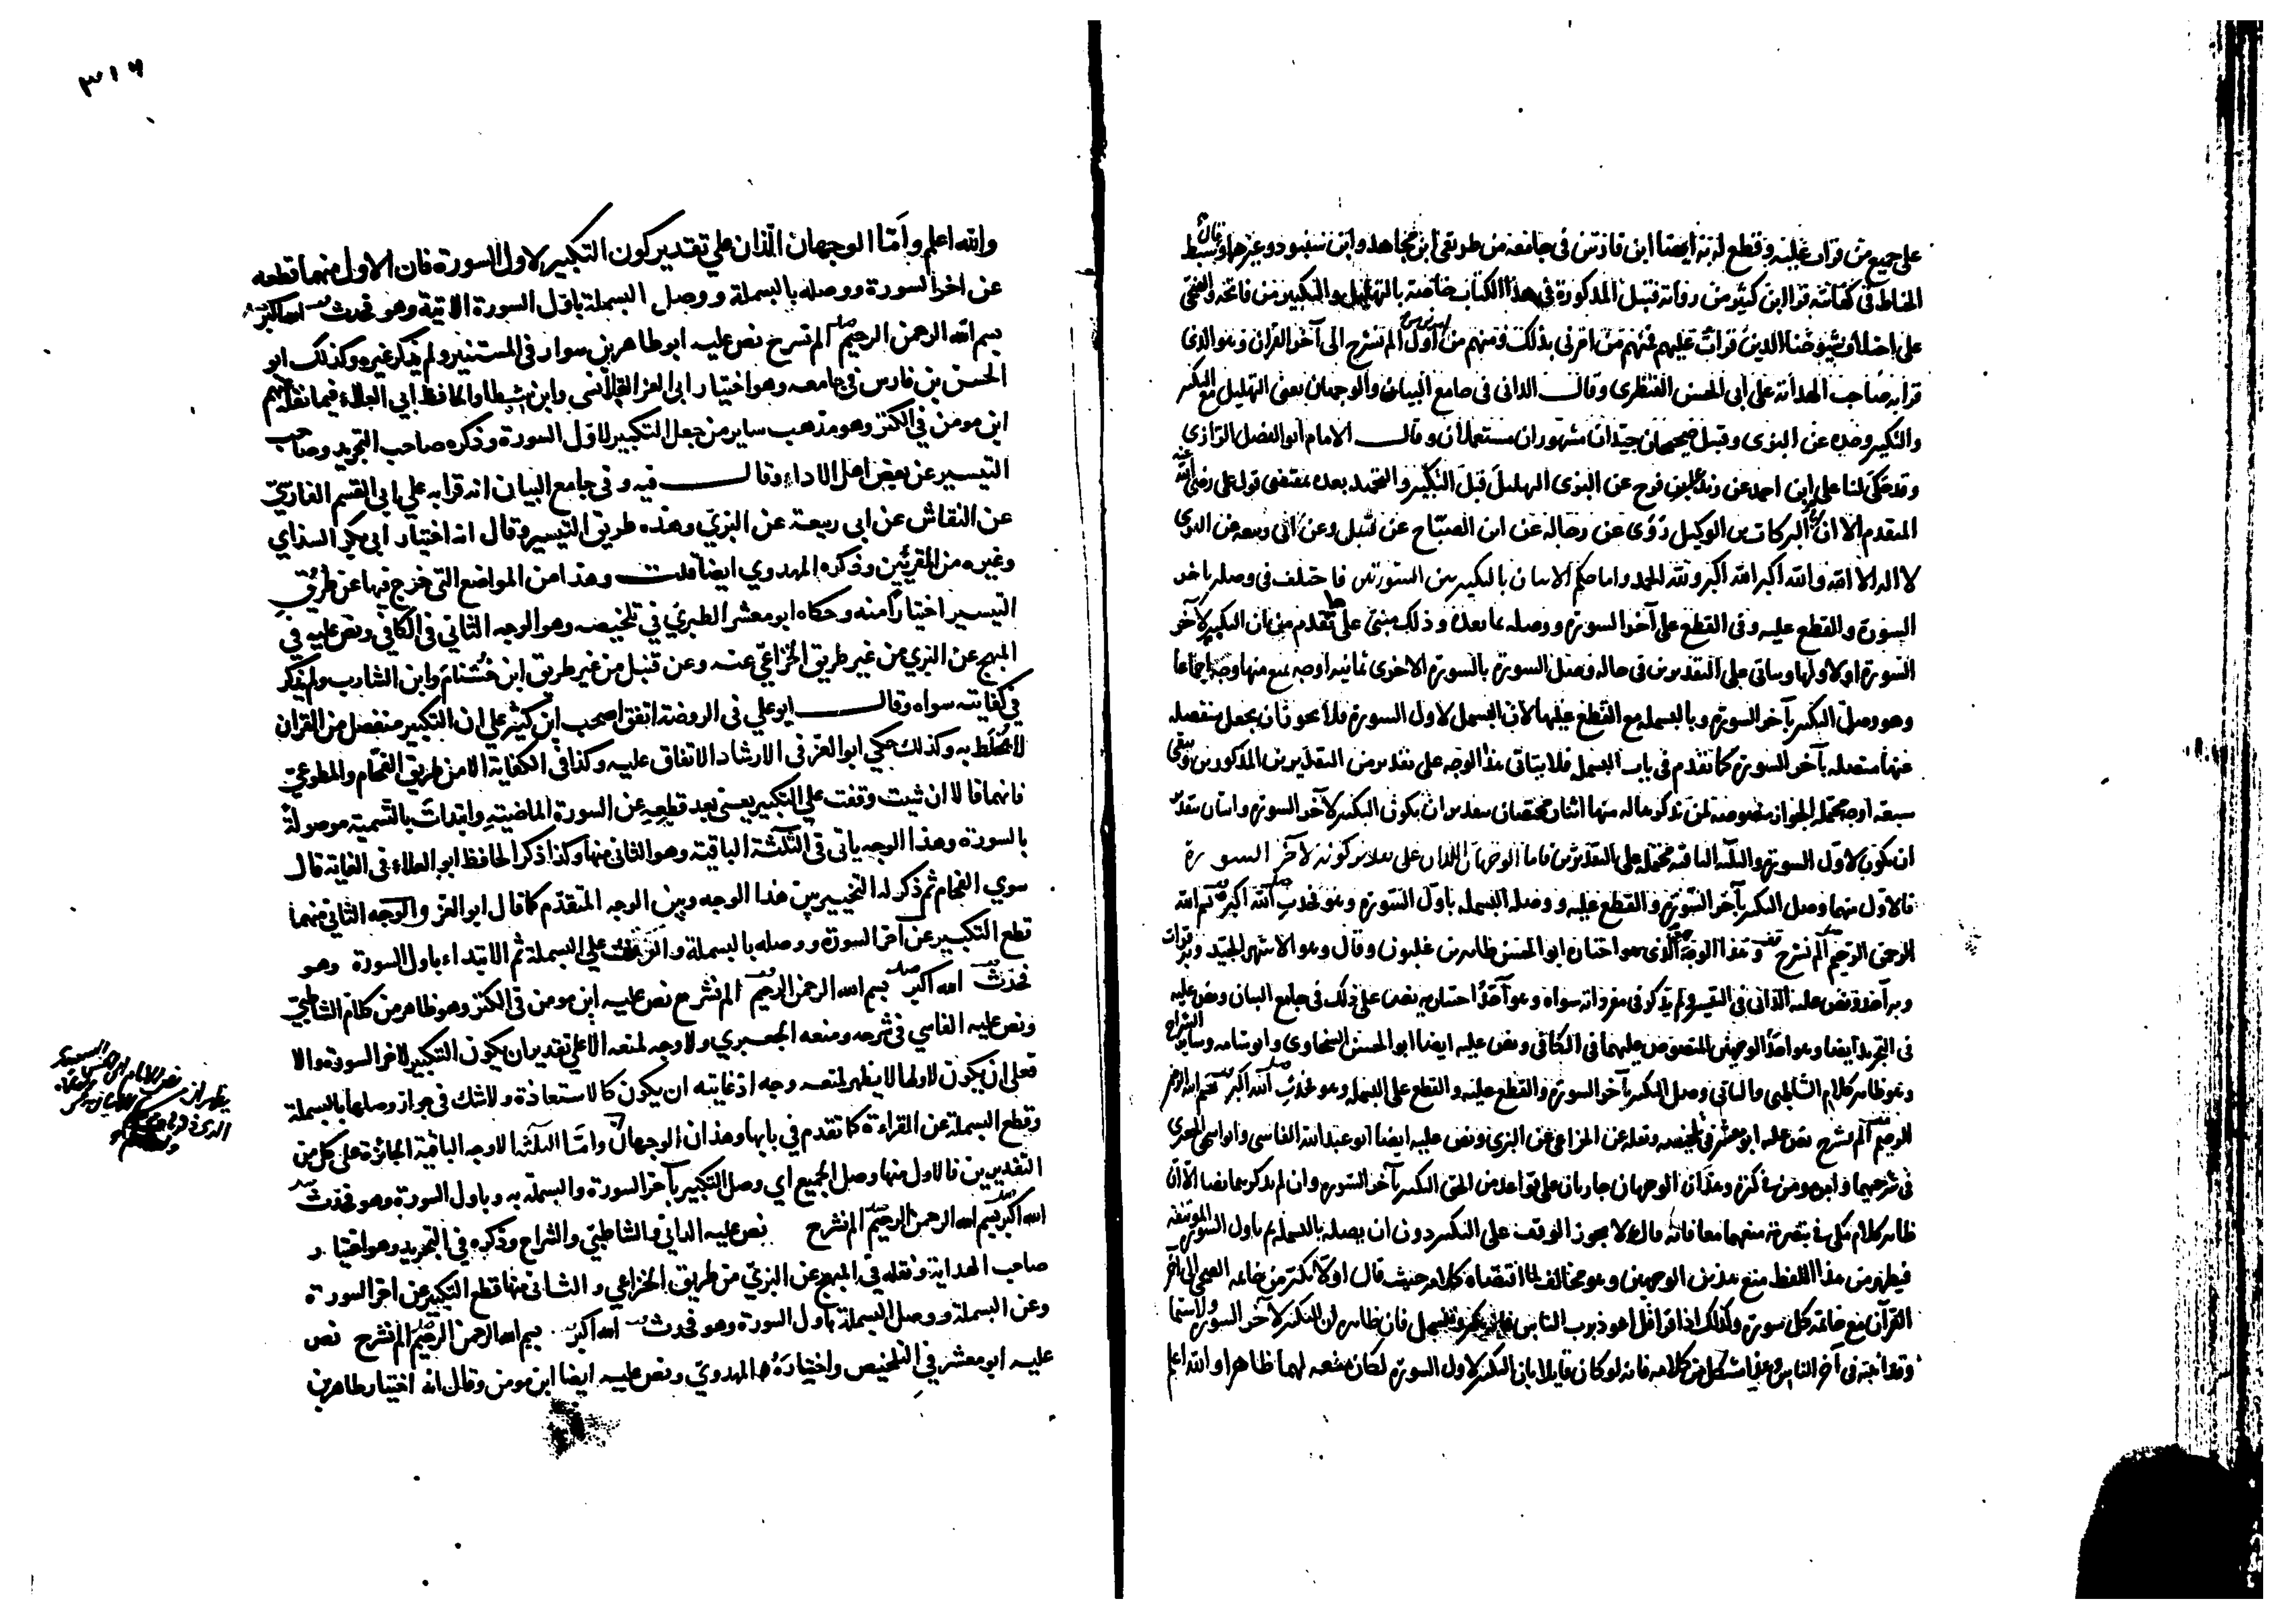 على جميع من قرأت عليه وقطع له به ايضا ابن فارس في جامعه من طريقي ابن مجاهد وابن شنبوذ وغيرهما وقال سبط
الخياط في كفايته قرأ ابن كثير من رواية قنبل المذكورة في هذا الكتاب خاصة بالتهليل والتكبير من فاتحة والضحى
على اختلاف شيوخنا الذين قرأت عليهم فمنهم من اقرأني بذلك ومنهم من اول الم نشرح الى آخر القرآن وهو الذي
قرأ به صاحب الهداية على ابي الحسن القنطري وقال الداني في جامع البيان والوجهان يعني التهليل مع التكبير
والتكبير وحده عن البزي وقنبل صحيحان جيدان مشهوران مستعملان وقال الامام ابو الفضل الرازي
وقد حكى لنا علي ابن احمد عن زيد عن ابن فرح عن البزي التهليل قبل التكبير والتحميد بعده بمقتضى قول علي رضي الله عنه
المتقدم الا ان ابا البركات بن الوكيل روى عن رجاله عن ابن الصباح عن قنبل وعن ابي ربيعة عن البزي
لا اله الا الله والله اكبر الله اكبر ولله الحمد واما حكم الاتيان بالتكبير بين السورتين فاختلف في وصله باخر
السورة والقطع عليه وفي القطع على آخر السورة ووصله بما بعده وذلك مبني على ما تقدم من ان التكبير لآخر
السورة او لاولها ويتاتى على التقديرين في حالة وصل السورة بالسورة الاخرى ثمانية اوجه يمتنع منها وجه اجماعا
وهو وصل التكبير بآخر السورة وبالبسملة مع القطع عليها لان البسملة لاول السورة فلا يجوز ان يجعل منفصلة
عنها متصلة بآخر السورة كما تقدم في باب البسملة فلا يتاتى هذا الوجه على تقدير من التقديرين المذكورين وتبقى
سبعة اوجه محتملة الجواز منصوصة لمن نذكرها له منها اثنان مختصان بتقدير ان يكون التكبير لآخر السورة واثنان بتقدير
ان يكون لاول السورة والثلثة الباقية محتملة على التقديرين فاما الوجهان اللذان على تقدير كونه لآخر السورة
فالاول منهما وصل التكبير بآخر السورة والقطع عليه ووصل البسملة باول السورة وهو فحدث الله اكبر بسم الله
الرحمن الرحيم الم نشرح وهذا الوجه الذي هو اختاره ابو الحسن طاهر بن غلبون وقال وهو الاشهر الجيد وبه قرأت
وبه آخذ ونص عليه الداني في التيسير ولم يذكر في مفرداته سواه وهو احد اختياريه نص على ذلك في جامع البيان ونص عليه
في التجريد ايضا وهو احد الوجهين المنصوص عليهما في الكافي ونص عليه ايضا ابو الحسن السخاوي وابو شامة وساير الشراح
وهو ظاهر كلام الشاطبي والثاني وصل التكبير بآخر السورة والقطع عليه والقطع على البسملة وهو فحدث الله اكبر بسم الله الرحمن
الرحيم الم نشرح نص عليه ابو معشر في تلخيصه ونقله عن الخزاعي عن البزي ونص عليه ايضا ابو عبد الله الفاسي وابو اسحق الجعبري
في شرحيهما وابن مومن في كنزه وهذان الوجهان جاريان على قواعد من الحق التكبير بآخر السورة وان لم يذكرهما نصا الا ان
ظاهر كلام مكي في تبصرته منعهما معا فانه قال ولا يجوز الوقف على التكبير دون ان يصله بالبسملة ثم باول السورة المؤتنفة
فيظهر من هذا اللفظ منع هذين الوجهين وهو مخالف لما اقتضاه كلامه حيث قال اولا يكبر من خاتمة الضحى الى آخر
القرآن مع خاتمة كل سورة وكذلك اذا قرأ قل اعوذ برب الناس فانه يكبر ويبسمل فان ظاهره ان التكبير لآخر السورة ولا سيما
وقد اثبته في آخر الناس وهذا مشكل من كلامه فانه لو كان قايلا بان التكبير لاول السورة لكان منعه لهما ظاهرا والله اعلم
٣١٦
والله اعلم واما الوجهان اللذان على تقدير كون التكبير لاول السورة فان الاول منهما قطعه
عن اخر السورة ووصله بالبسملة ووصل البسملة باول السورة الاتية وهو فحدث الله اكبر
بسم الله الرحمن الرحيم الم نشرح نص عليه ابو طاهر بن سوار في المستنير ولم يذكر غيره وكذلك ابو
الحسن بن فارس في جامعه وهو اختيار ابي العز القلانسي وابن شيطا والحافظ ابي العلاء فيما نقله عنهم
ابن مومن في الكنز وهو مذهب ساير من جعل التكبير لاول السورة وذكره صاحب التجريد وصاحب
التيسير عن بعض اهل الاداء وقال فيه وفي جامع البيان انه قرا به على ابي القسم الفارسي
عن النقاش عن ابي ربيعة عن البزي وهذه طريق التيسير وقال انه اختيار ابي بكر الشذاي
وغيره من المقرئين وذكره المهدوي ايضا قلت وهذا من المواضع التي خرج فيها عن طريق
التيسير اختيارا منه وحكاه ابو معشر الطبري في تلخيصه وهو الوجه الثاني في الكافي ونص عليه في
المبهج عن البزي من غير طريق الخزاعي عنه وعن قنبل من غير طريق ابن خشنام وابن الشارب ولم يذكر
في كفايته سواه وقال ابو علي في الروضة اتفق اصحب ابن كثير على ان التكبير منفصل من القران
لا يخلط به وكذلك حكي ابو العز في الارشاد الاتفاق عليه وكذا في الكفاية الا من طريق الفحام والمطوعي
فانهما قالا ان شيت وقفت على التكبير يعني بعد قطعه عن السورة الماضية وابتدات بالتسمية موصولة
بالسورة وهذا الوجه ياتي في الثلثة الباقية وهو الثاني منها وكذا ذكر الحافظ ابو العلاء في الغاية قال
سوي الفحام ثم ذكر له التخيير بين هذا الوجه وبين الوجه المتقدم كما قال ابو العز والوجه الثاني منهما
قطع التكبير عن آخر السورة ووصله بالبسملة والوقف على البسملة ثم الابتداء باول السورة وهو
فحدث الله اكبر بسم الله الرحمن الرحيم الم نشرح نص عليه ابن مومن في الكنز وهو ظاهر من كلام الشاطبي
ونص عليه الفاسي في شرحه ومنعه الجعبري ولا وجه لمنعه الا على تقدير ان يكون التكبير لاخر السورة والا
فعلى ان يكون لاولها لا يظهر لمنعه وجه اذ غايته ان يكون كالاستعاذة ولا شك في جواز وصلها بالبسملة
وقطع البسملة عن القراءة كما تقدم في بابها وهذان الوجهان واما الثلثة الاوجه الباقية الجائزة على كل من
التقديرين فالاول منها وصل الجميع اي وصل التكبير بآخر السورة والبسملة به وباول السورة وهو فحدث
الله اكبر بسم الله الرحمن الرحيم الم نشرح نص عليه الداني والشاطبي والشراح وذكره في التجريد وهو اختيار
صاحب الهداية ونقله في المبهج عن البزي من طريق الخزاعي والثاني منها قطع التكبير عن اخر السورة
وعن البسملة ووصل البسملة باول السورة وهو فحدث الله اكبر بسم الله الرحمن الرحيم الم نشرح نص
عليه ابو معشر في التلخيص واختاره المهدوي ونص عليه ايضا ابن مومن وقال انه اختيار طاهر بن